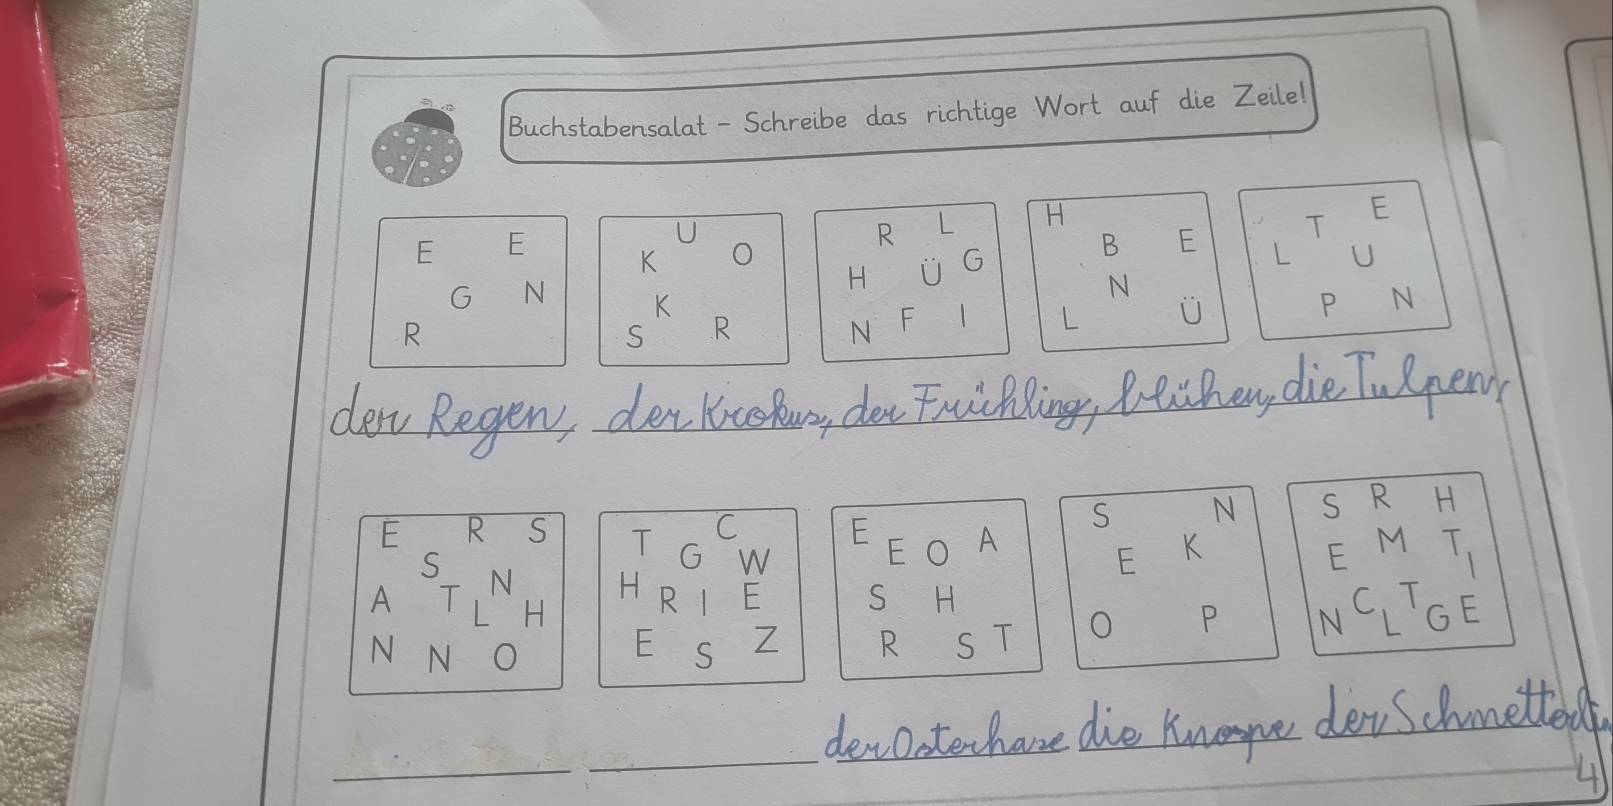 Buchstabensalat - Schreibe das richtige Wort auf die Zeile!
E E G N R
U K O K S R
R L H Ü G N F I
H B E N L Ü
T E L U P N
der Regen, der Krokus, der Frühling, blühen, die Tulpen,
E R S S A T L N H N N O
T C G W H R I E E S Z
E E O A S H R S T
S N E K O P
S R H E M T I N C L T G E
der Osterhase die Knospe der Schmetterli
4